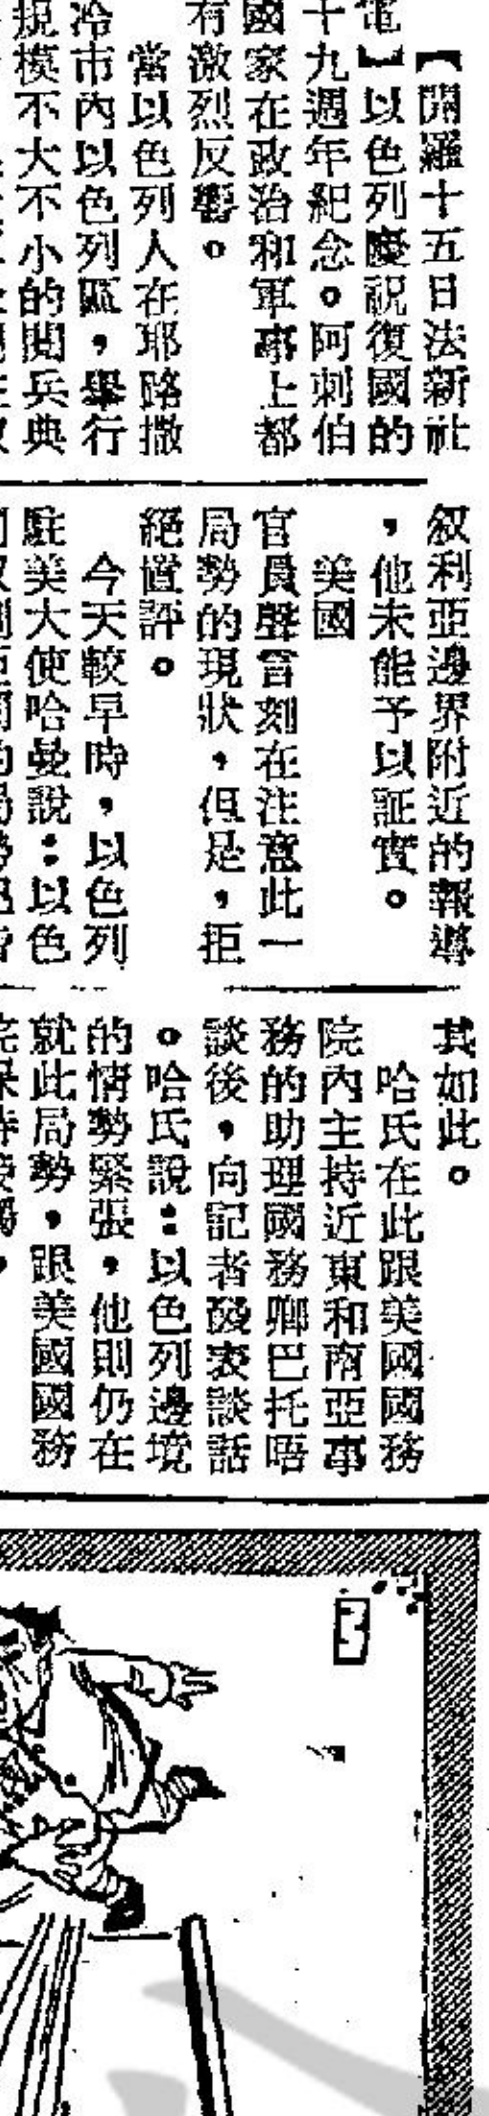 【開羅十五日法新社
電】以色列慶祝復國的
十九週年紀念。阿刺伯
國家在政治和軍事上都
有激烈反響。
當以色列人在耶路撒
冷市內以色列區，舉行
規模不大不小的閱兵典
叙利亞邊界附近的報導
，他未能予以証實。
美國
官員聲言刻在注意此一
局勢的現狀，但是，拒
絕置評。
今天較早時，以色列
駐美大使哈曼說：以色
其如此。
哈氏在此跟美國國務
院內主持近東和南亞事
務的助理國務卿巴托唔
談後，向記者發表談話
。哈氏說：以色列邊境
的情勢緊張，他則仍在
就此局勢，跟美國國務
3